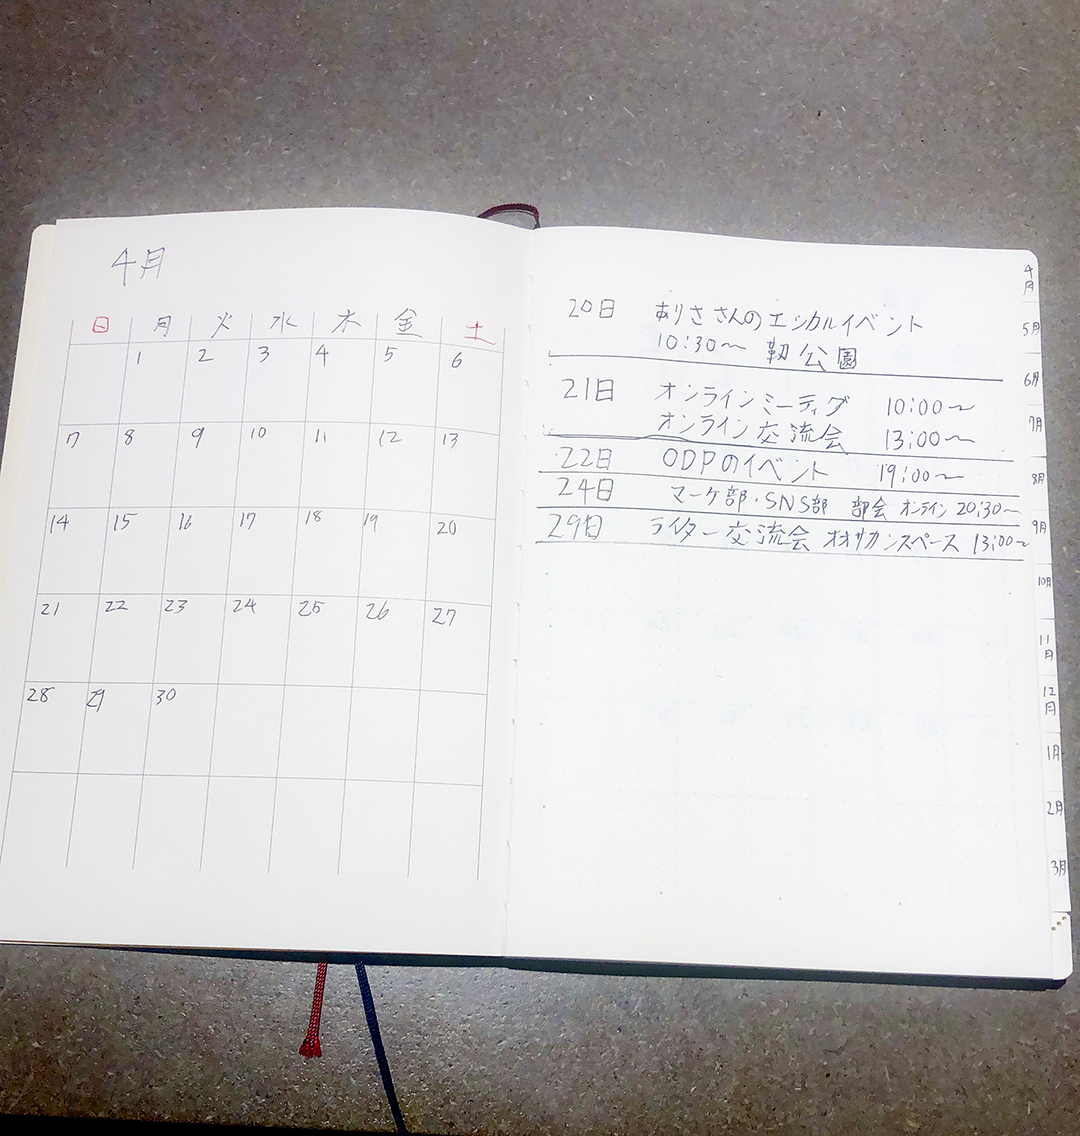 4月
日 月 火 水 木 金 土
1 2 3 4 5 6
7 8 9 10 11 12 13
14 15 16 17 18 19 20
21 22 23 24 25 26 27
28 29 30
20日 ありささんのエシカルイベント
10:30〜 靭公園
21日 オンラインミーティグ 10:00〜
オンライン交流会 13:00〜
22日 ODPのイベント 19:00〜
24日 マーケ部・SNS部 部会 オンライン 20:30〜
29日 ライター交流会 オオサカンスペース 13:00〜
4月
5月
6月
7月
8月
9月
10月
11月
12月
1月
2月
3月